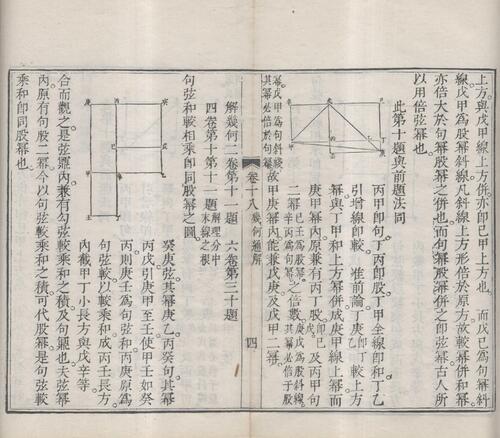 上方與戊甲線上方併亦即巳甲上方也　而戊巳為句冪斜
線戊甲為股冪斜線凡斜線上方形倍於原方故較冪併和冪
亦倍大於句冪股冪之併也而句冪股冪併之即弦冪古人所
以用倍弦冪也
此第十題與前題法同
丙甲即句丁丙即股丁甲全線即和丁乙
引增線即較　准前論丁庚即丁乙較上方
冪與丁甲和上方冪併成庚甲線上冪而
庚甲冪內原兼有丙丁股即巳及丙甲句
二冪己壬為股冪辛丙為句冪之倍數庚戊為股斜線其冪必倍於股
冪戊甲為句斜線其冪必倍於句冪故甲庚冪內能兼戊庚及戊甲二冪
卷十八　幾何通解　四
解幾何二卷第十一題　六卷第三十題
四卷第十第十一題　解理分中末線之根
句弦和較相乘即同股冪之圖
癸庚弦其冪庚乙丙癸句其冪
丙戊引庚甲至壬使甲壬如癸
丙則庚壬為句弦和丙庚原為
句弦較以較乘和成丙壬長方
內截甲丁小長方與戊辛等
合而觀之是弦冪內兼有句弦較乘和之積及句冪也夫弦冪
內原有句股二冪今以句弦較乘和之積可代股冪是句弦較
乘和即同股冪也